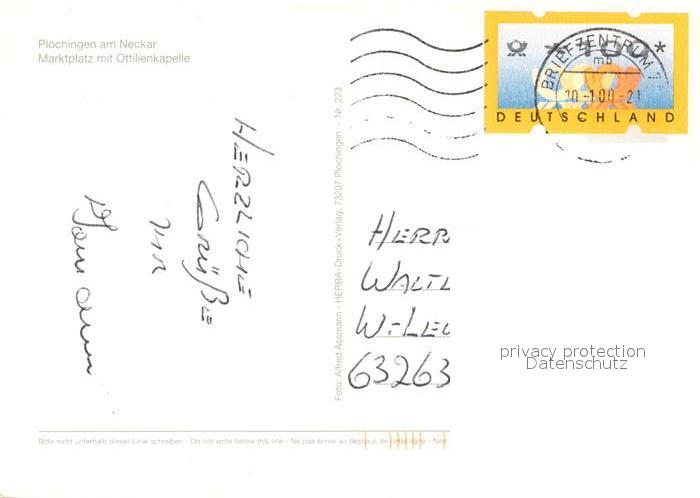 Plochingen am Neckar
Marktplatz mit Ottilienkapelle
HERZLICHE
GRÜßE
Foto: Alfred Assmann - HERBA-Druck+Verlag, 73207 Plochingen - Nr. 223
*100*
BRIEFZENTRUM
mb
10-1.00-21
DEUTSCHLAND
HERR
WALT
W.-LEU
63263
privacy protection
Datenschutz
Bitte nicht unterhalb dieser Linie schreiben - Do not write below this line - Ne pas écrire au dessous de cette ligne - Non